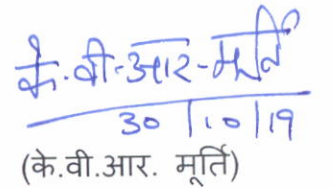 के.वी-आर-मूर्ति
30/10/19
(के.वी.आर. मूर्ति)